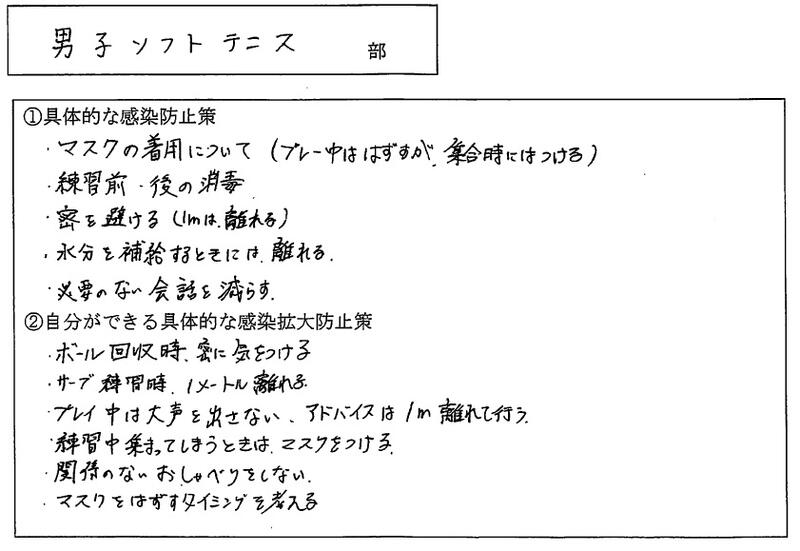 男子ソフトテニス 部
①具体的な感染防止策
・マスクの着用について(プレー中ははずすが、集合時にはつける)
・練習前・後の消毒
・密を避ける(1mは、離れる)
・水分を補給するときには、離れる。
・必要のない会話を減らす。
②自分ができる具体的な感染拡大防止策
・ボール回収時、密に気をつける
・サーブ練習時、1メートル離れる。
・プレイ中は大声を出さない、アドバイスは1m離れて行う。
・練習中集まってしまうときは、マスクをつける。
・関係のないおしゃべりをしない。
・マスクをはずすタイミングを考える